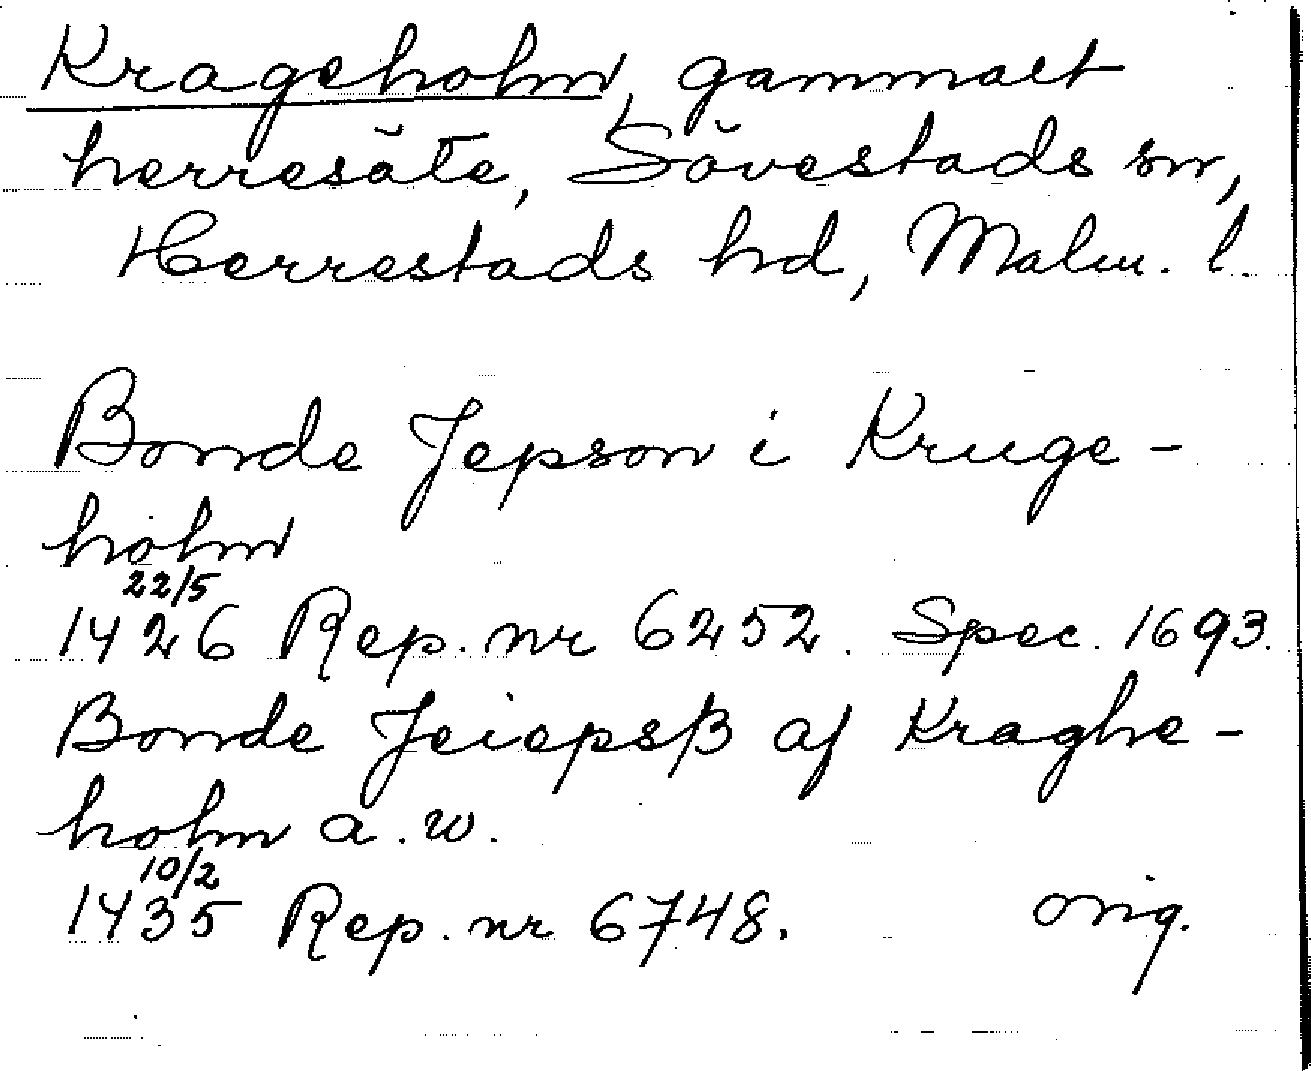 Krageholm, gammalt
herresäte, Sövestads sn,
Herrestads hd, Malm. l.
Bonde Jepson i Kruge-
holm
22/5
1426 Rep. nr 6252. Spec. 1693.
Bonde Jeiepsß af Kraghe-
holm a.w.
10/2
1435 Rep. nr 6748. orig.